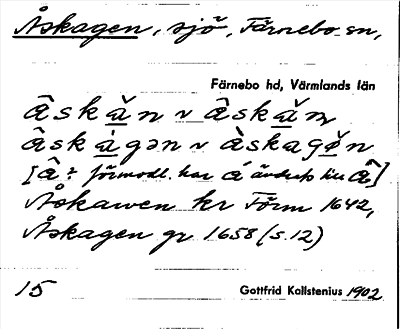 Åskagen, sjö, Färnebo sn,
Färnebo hd, Värmlands län
âskǎn v âskǎn
âskàgən v àskagǝ̌n
[â : förmodl. har á ändrats till â]
Åskawen kr Förm 1642,
Åskagen gr 1658 (s. 12)
15
Gottfrid Kallstenius 1902